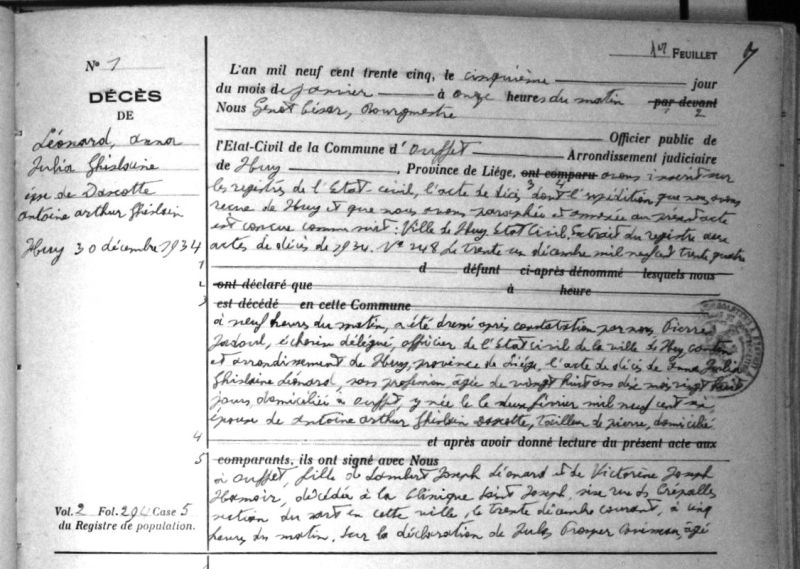 1er FEUILLET
Nº 1
DÉCÈS
DE
Léonard, Anna
Julia Ghislaine
épse de Dascotte
Antoine Arthur Ghislain
Huy 30 décembre 1934
Vol. 2 Fol. 204 Case 5
du Registre de population.
L'an mil neuf cent trente cinq, le cinquième jour
du mois de janvier à onze heures du matin par devant
Nous Genot César, Bourgmestre
Officier public de
l'Etat-Civil de la Commune d'Ouffet Arrondissement judiciaire
de Huy, Province de Liége, ont comparu avons inscrit sur
les registres de l'Etat-civil, l'acte de décès dont l'expédition, que nous avons
reçue de Huy et que nous avons paraphée et annexée au présent acte
est conçue comme suit: Ville de Huy, Etat Civil, Extrait du registre aux
actes de décès de 1934. Nº 248. Le trente un décembre mil neuf cent trente quatre
1 d défunt ci-après dénommé lesquels nous
2 ont déclaré que à heure
3 est décédé en cette Commune
à neuf heures du matin, a été dressé après constatation par nous Pierre
Jadoul, échevin délégué, officier de l'Etat Civil de la ville de Huy, canton
et arrondissement de Huy, province de Liége, l'acte de décès de Anna Julia
Ghislaine Léonard, sans profession âgée de vingt huit ans dix mois vingt huit
jours, domiciliée à Ouffet y née le deux février mil neuf cent six
épouse de Antoine Arthur Ghislain Dascotte, tailleur de pierre, domicilié
4 et après avoir donné lecture du présent acte aux
5 comparants, ils ont signé avec Nous
à Ouffet, fille de Lambert Joseph Léonard et de Victorine Joseph
Hamoir, décédée à la Clinique Saint Joseph, sise rue des Crépalles
section du nord en cette ville, le trente décembre courant, à cinq
heures du matin. Sur la déclaration de Jules Prosper âgé